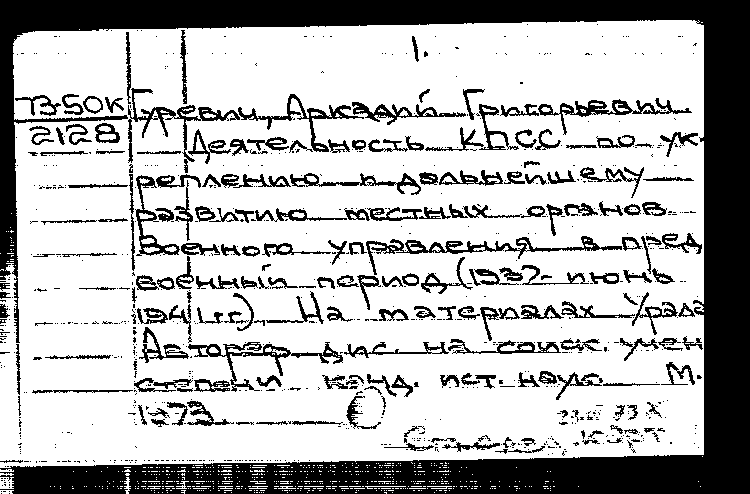 1.
73-50К Гуревич, Аркадий Григорьевич
2128 Деятельность КПСС по ук-
реплению и дальнейшему
развитию местных органов
Военного управления в пред
военный период (1937- июнь
1941 гг.) На материалах Урала
Автореф. дис. на соиск. учен
степени канд. ист. наук М.
1973